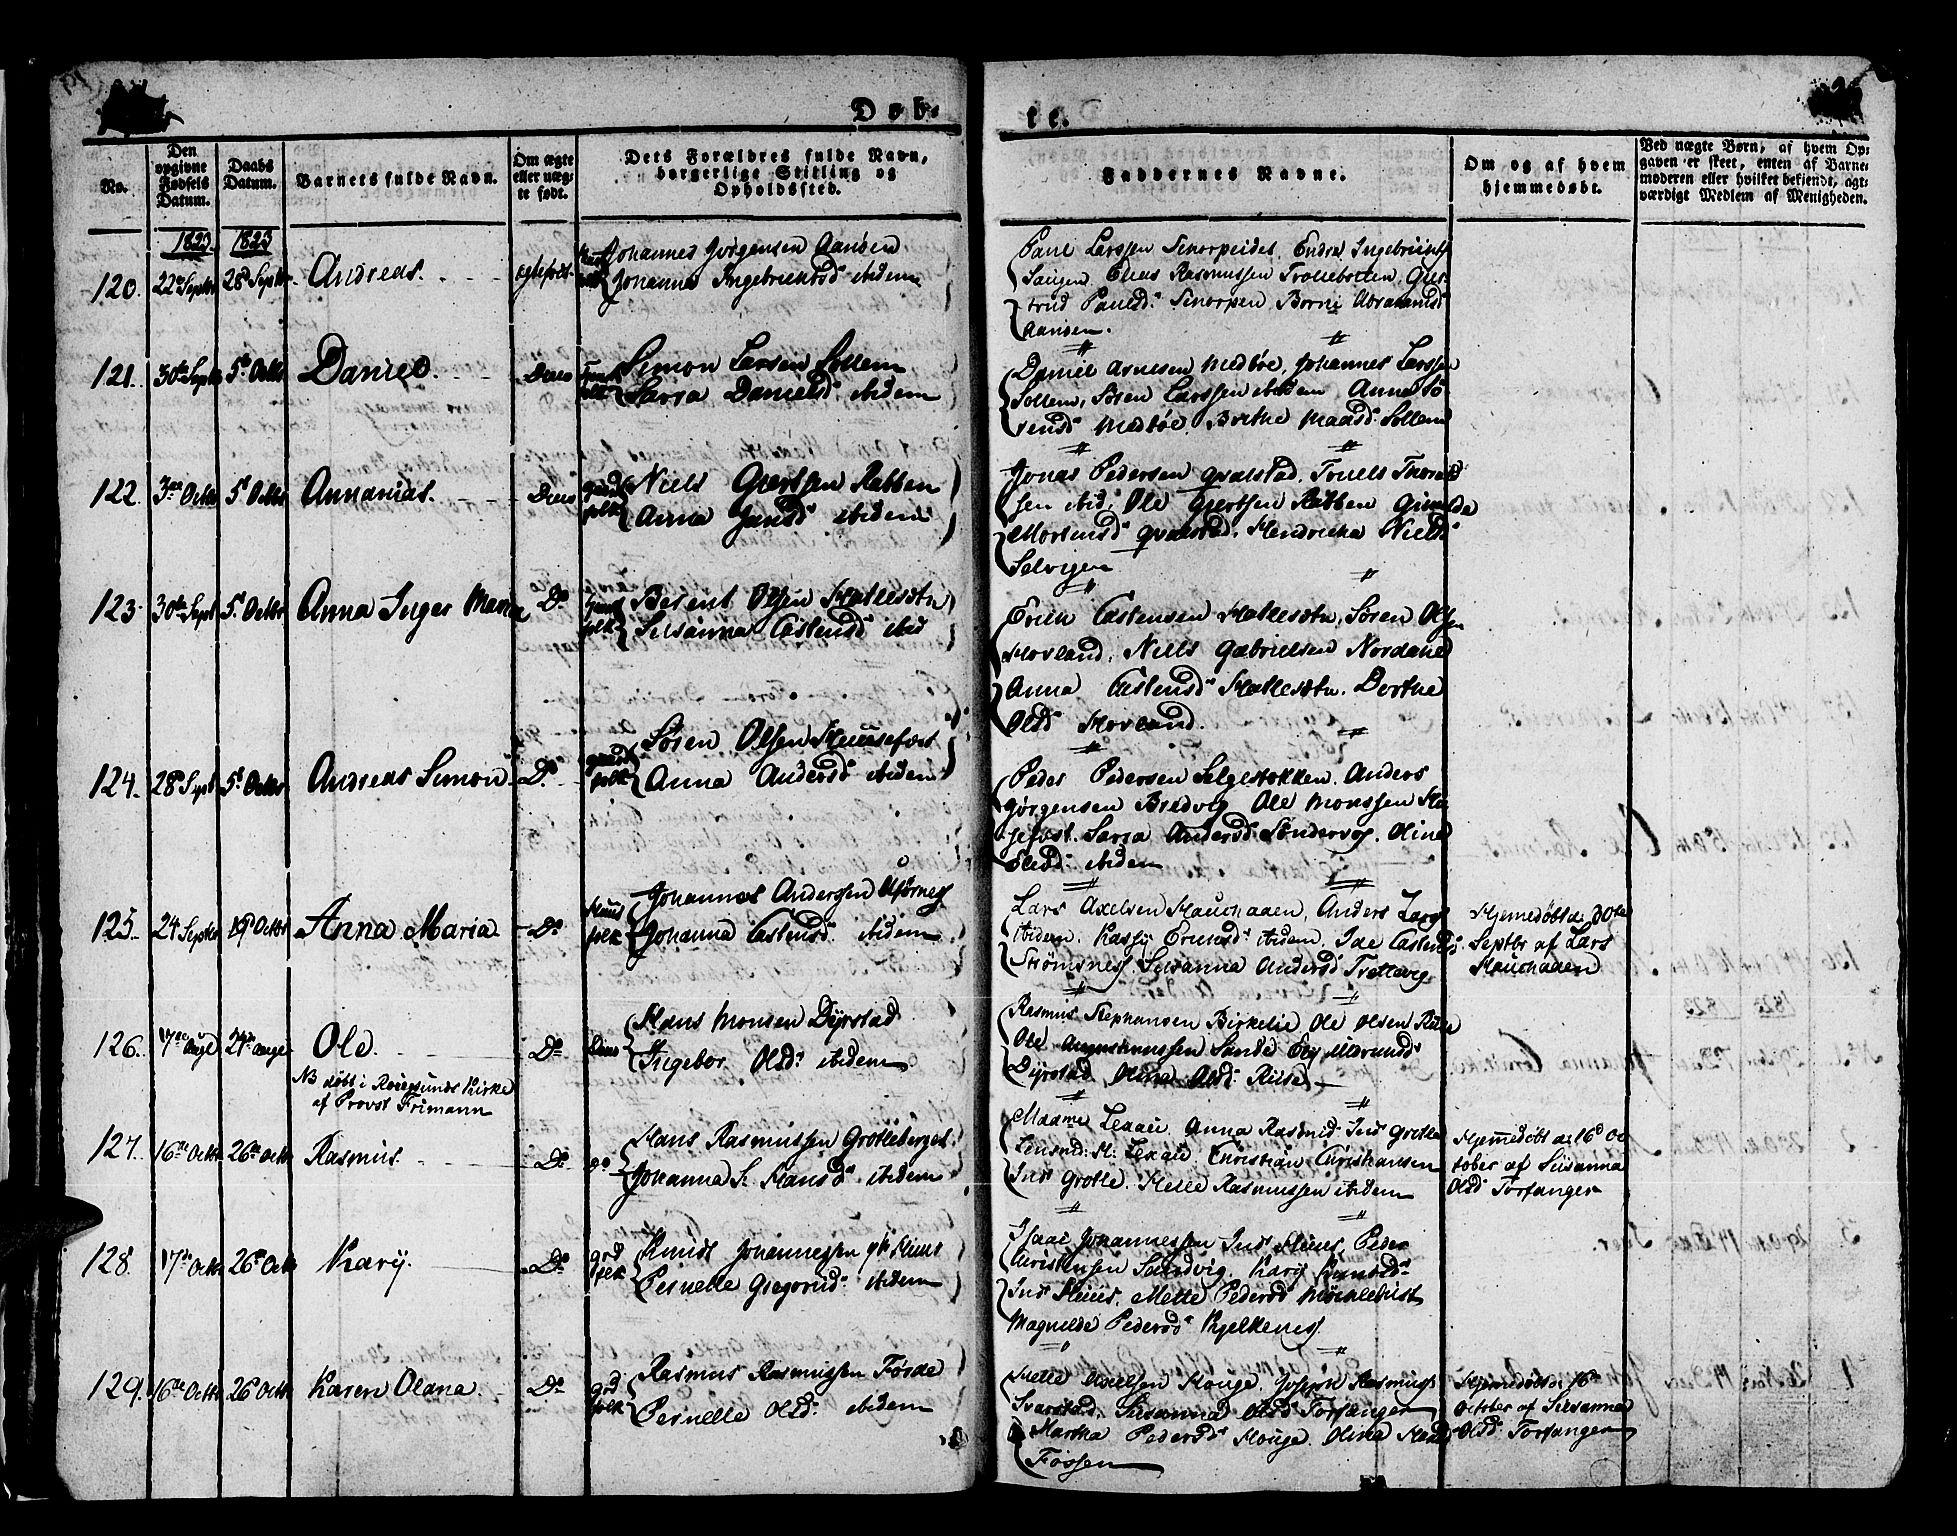 Døb-
te.
No.
Den
opgivne
Fødsels
Datum.
Daabs
Datum.
Barnets fulde Navn.
Om ægte
eller uæg-
te født.
Dets Forældres fulde Navn,
borgerlige Stilling og
Opholdssted.
Faddernes Navne.
Om og af hvem
hjemmedøbt.
Ved uægte Børn, af hvem Op-
gaven er skeet, enten af Barne-
moderen eller hvilket bekjendt, agt-
værdigt Medlem af Menigheden.
1823 1823
120. 22de Septbr 28de Septbr Andreas. ægtefødt
Johannes Jørgensen Aansen
Johanna Ingebrictsd ibidem
Paul Larssen Snorpeidet, Endre Ingebrictss
Saugen, Elias Rasmussen Trollebotten, Gier-
trud Paulsd: Snorpen Borni Abrahamsd
Aansen.
121. 30te Septb 5te Octbr Daniel. Dito
Simon Larsen Sollem
Sarra Danielsd ibidem
Daniel Arnesen Medbøe, Johannes Larssen
Sollem, Søren Larssen ibidem Anna Sø-
rensd Medbøe, Birthe Maasd: Sollem
122. 3die Octbr 5te Octbr Annanias. Dito
gaard
folk
Niels Giertsen Rebben
Anna Jensd ibidem
Jonas Pedersen Qvalstad, Truels Thorvald
sen ibid, Ole Giertsen Rebben Gunilda
Mortensd Qvalstad. Hendricka Nielsd
Selvigen
123. 30te Septb 5te Octbr Anna Inger Maria Do
folk
Berent Olsen Hatlesætn
Susanna Castensd ibid
Erich Castensen Hatlesætn, Søren Ols-
Hovland, Niels Gabrielsen Nordahl
Anna Castensd Hatlesætn. Dorthe
Olsd Hovland.
124. 28de Sept 5te Octbr Andreas Simon Do
gaard
folk
Søren Olsen Huusefast
Anna Andersd ibidem
Peder Pedersen Selgestokken. Anders
Jørgensen Bredvig Ole Monssen Hu-
sefast. Sarra Andersd Søndervog. Oline
Elisd: ibidem
125. 24 Septbr 19de Octbr Anna Maria Do
Huus
folk
Johannes Andersen Ufornes
Johanna Castensd. ibidem
Lars Axelsen Hauchaaen, Anders Larss
ibidem. Kassy Ericsd: ibidem. Ide Castensd
Strømsnes. Susanna Andersd Trettevig
Hjemedøbt d. 30te
Septbr af Lars
Hauchaaen
126. 17de Augt 24de Auge Ole. Do
NB døbt i Roiegsunds Kirke
af Provst Frimann
Dito
Hans Monsen Dyrstad
Ingebor Olsd: ibidem
Rasmus Stephansen Birkelie Ole Olsen Riise
Ole Augustinussen Sande Eli Marcusd
Dyrstad Olina Olsd: Riise
127. 16de Octb 26de Octb Rasmus. Do
Do
Hans Rasmussen Grotleberget
Johanna S. Hansd ibidem
Madame Lexau, Anna Rasmusd Indr Grotle
Lensmd: H: Lexau. Christian Christiansen
Indr Grotle. Helle Rasmussen ibidem
Hjemmedøbt d: 16de Oc-
tober af Susanna
Olsd Torfanger
128. 17de Octb 26de Octb Kary. Do
grd
folk
Knudt Johannessen ytr Huus
Pernelle Gregoriid: ibidem
Isaac Johannessen Indr Huus, Peder
Christensen Sandvig, Kary Knudsd:
Indr Huus, Mette Pedersd Møchlebust
Magnilde Pedersd: Kjelkenes
129. 16de Octb 26de Octb Karen Olana. Do
grd
folk
Rasmus Rasmussen Førde
Pernelle Olsd: ibidem
Helle Axelsen Houge, Joseph Rasmuss
Svarstad, Susanna Olsd Torfanger
Martha Pedersd Houge. Olina
Fossen
Hjemmedøbt d: 16de
October af Susanna
Olsd: Torfanger